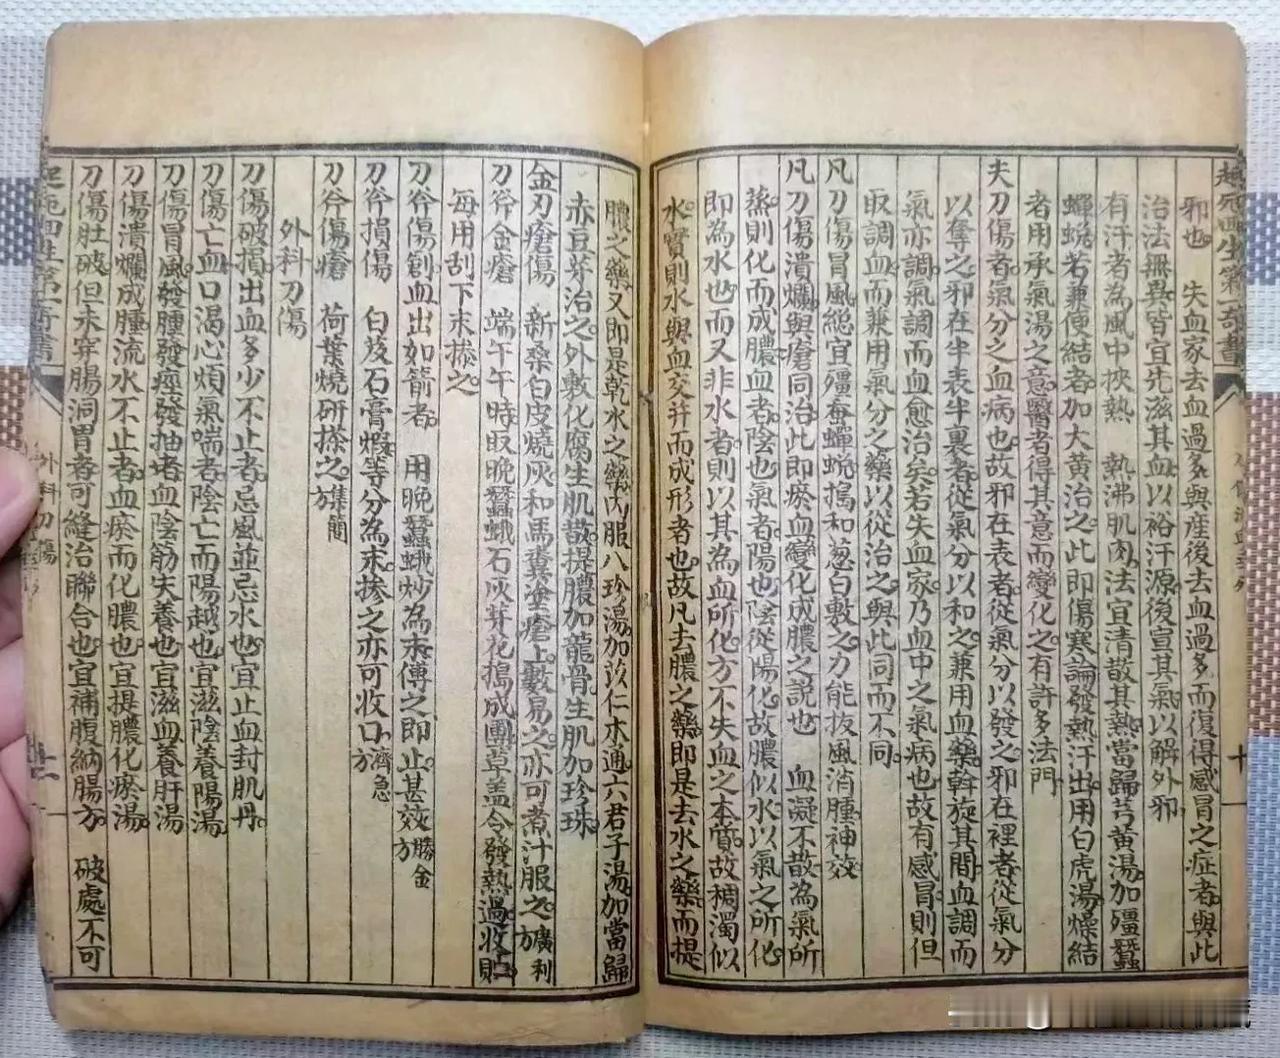 起死回生第一奇書
邪也　失血家去血過多與産後去血過多而復得感冒之症者與此
治法無異皆宜先滋其血以裕汗源後宣其氣以解外邪
有汗者為風中挾熱　熱沸肌肉法宜清散其熱當歸芎黃湯加殭蠶
蟬蛻若兼便結者加大黃治之此即傷寒論發熱汗出用白虎湯燥結
者用承氣湯之意醫者得其意而變化之有許多法門
夫刀傷者氣分之血病也故邪在表者從氣分以發之邪在裡者從氣分
以奪之邪在半表半裏者從氣分以和之兼用血藥幹旋其間血調而
氣亦調氣調而血愈治矣若失血家乃血中之氣病也故有感冒則但
取調血而兼用氣分之藥以從治之與此同而不同
凡刀傷冒風總宜殭蚕蟬蛻搗和葱白敷之力能拔風消腫神效
凡刀傷潰爛與瘡同治此即瘀血變化成膿之説也　血凝不散為氣所
蒸則化而成膿血者陰也氣者陽也陰從陽化故膿似水以氣之所化
即為水也而又非水者則以其為血所化方不失血之本質故稠濁似
水實則水與血交并而成形者也故凡去膿之藥即是去水之藥而提
十
膿之藥又即是乾水之藥内服八珍湯加苡仁木通六君子湯加當歸
赤豆芽治之外敷化腐生肌散提膿加龍骨生肌加珍珠
金刃瘡傷　新桑白皮燒灰和馬糞塗瘡上數易之亦可煮汁服之廣利方
刀斧金瘡　端午午時取晚蠶蛾石灰芽花搗成團草盖令發熱過收貯
每用刮下末搽之
刀斧傷創血出如箭者　用晚蠶蛾炒為末傅之即止甚效勝金方
刀斧損傷　白芨石膏煅等分為末摻之亦可收口濟急方
刀斧傷瘡　荷葉燒研搽之集簡方
外科刀傷
刀傷破損出血多少不止者忌風並忌水也宜止血封肌丹
刀傷亡血口渴心煩氣喘者陰亡而陽越也宜滋陰養陽湯
刀傷冒風發腫發痙發抽者血陰筋失養也宜滋血養肝湯
刀傷潰爛成腫流水不止者血瘀而化膿也宜提膿化瘀湯
刀傷肚破但未穿腸洞胃者可縫治聯合也宜補腹納腸方　破處不可
起死回生第一奇書
外科刀傷